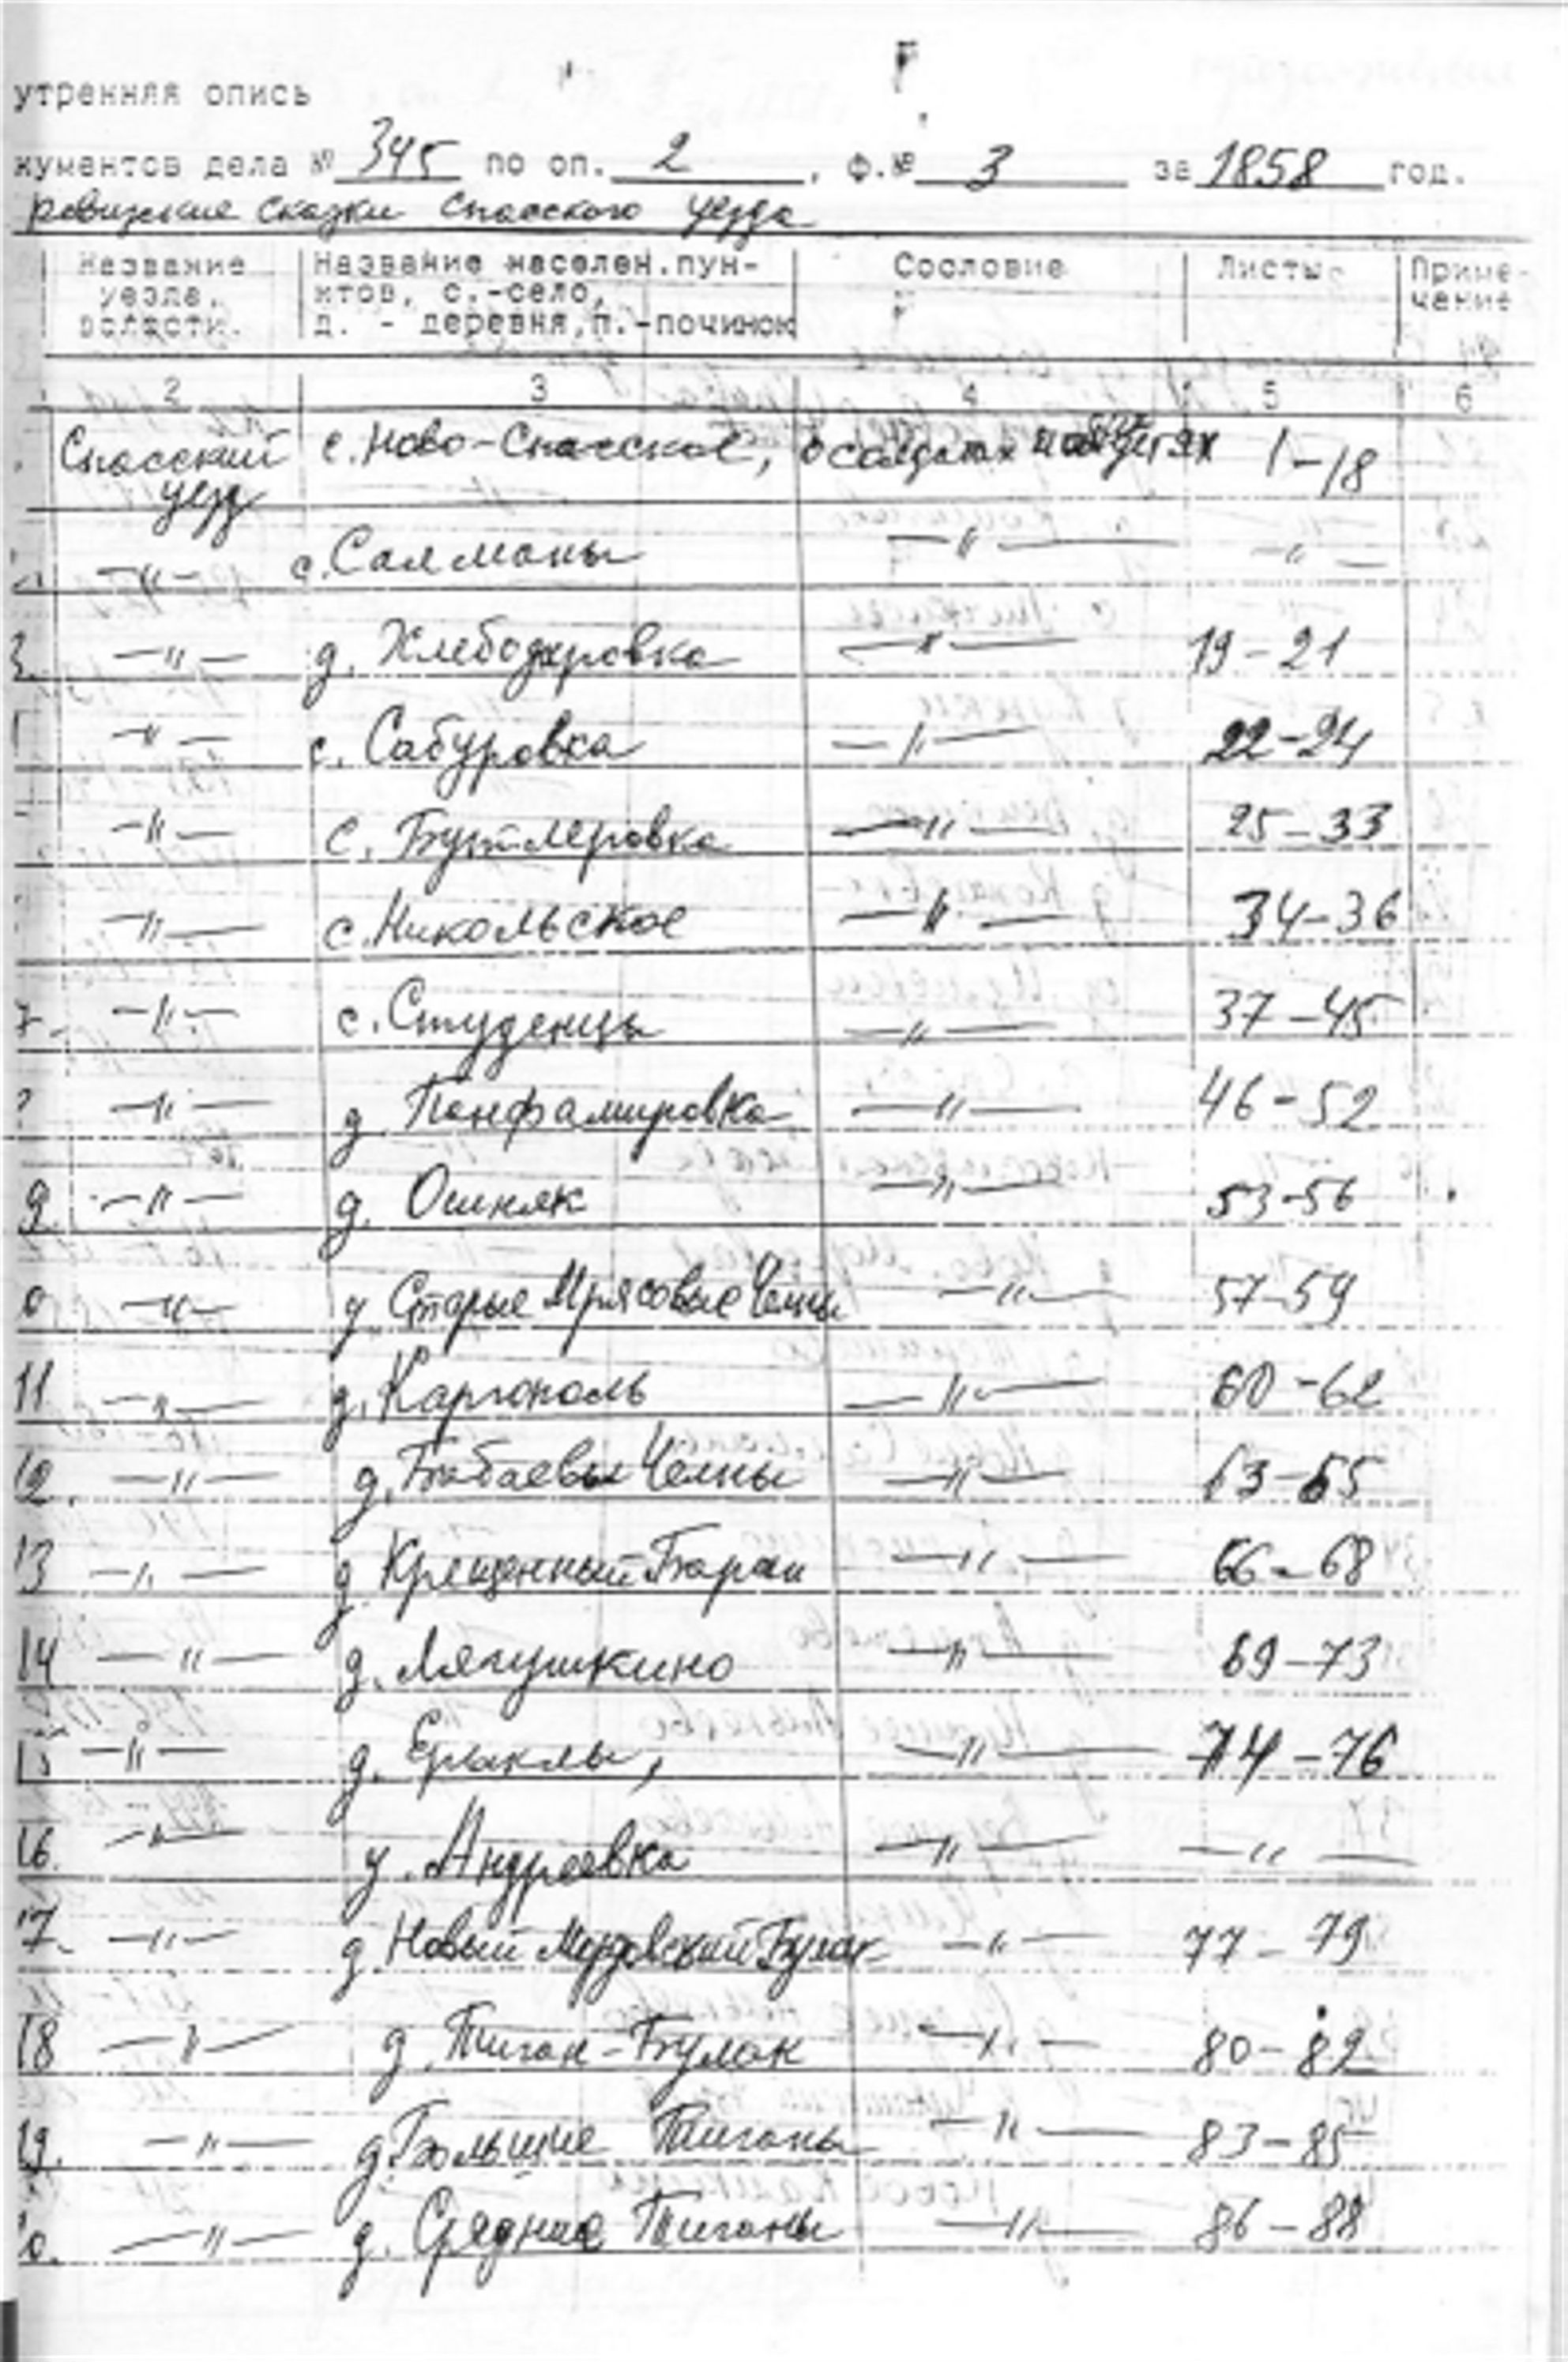 утренняя опись
кументов дела № 345 по оп. 2, ф.№ 3 за 1858 год.
ревизские сказки Спасского уезда
Название уезда, волости. | Название населен.пунктов, с.-село, д. - деревня,п.-починок | Сословие | Листы | Примечание
2 | 3 | 4 | 5 | 6
Спасский уезд | с. Ново-Спасское, | о солдатах | 1-18
—"— | с. Салманы | —"— | —"—
3. —"— | д. Хлебодаровка | —"— | 19-21
—"— | с. Сабуровка | —"— | 22-24
—"— | с. Бутлеровка | —"— | 25-33
—"— | с. Никольское | —"— | 34-36
7. —"— | с. Студенцы | —"— | 37-45
—"— | д. Панфамировка | —"— | 46-52
9. —"— | д. Ошняк | —"— | 53-56
0 —"— | д Старые Мрясовые Челны | —"— | 57-59
11 —"— | д. Каргополь | —"— | 60-62
12. —"— | д. Бабаевы Челны | —"— | 63-65
13 —"— | д Крещенный Баран | —"— | 66-68
14 —"— | д. Лягушкино | —"— | 69-73
15 —"— | д. Ераклы, | —"— | 74-76
16. —"— | д. Андреевка | —"— | —"—
17. —"— | д. Новый Мордовский Булак | —"— | 77-79
18 —"— | д. Тиган-Булак | —"— | 80-82
19. —"— | д. Большие Тиганы | —"— | 83-85
0. —"— | д. Средние Тиганы | —"— | 86-88